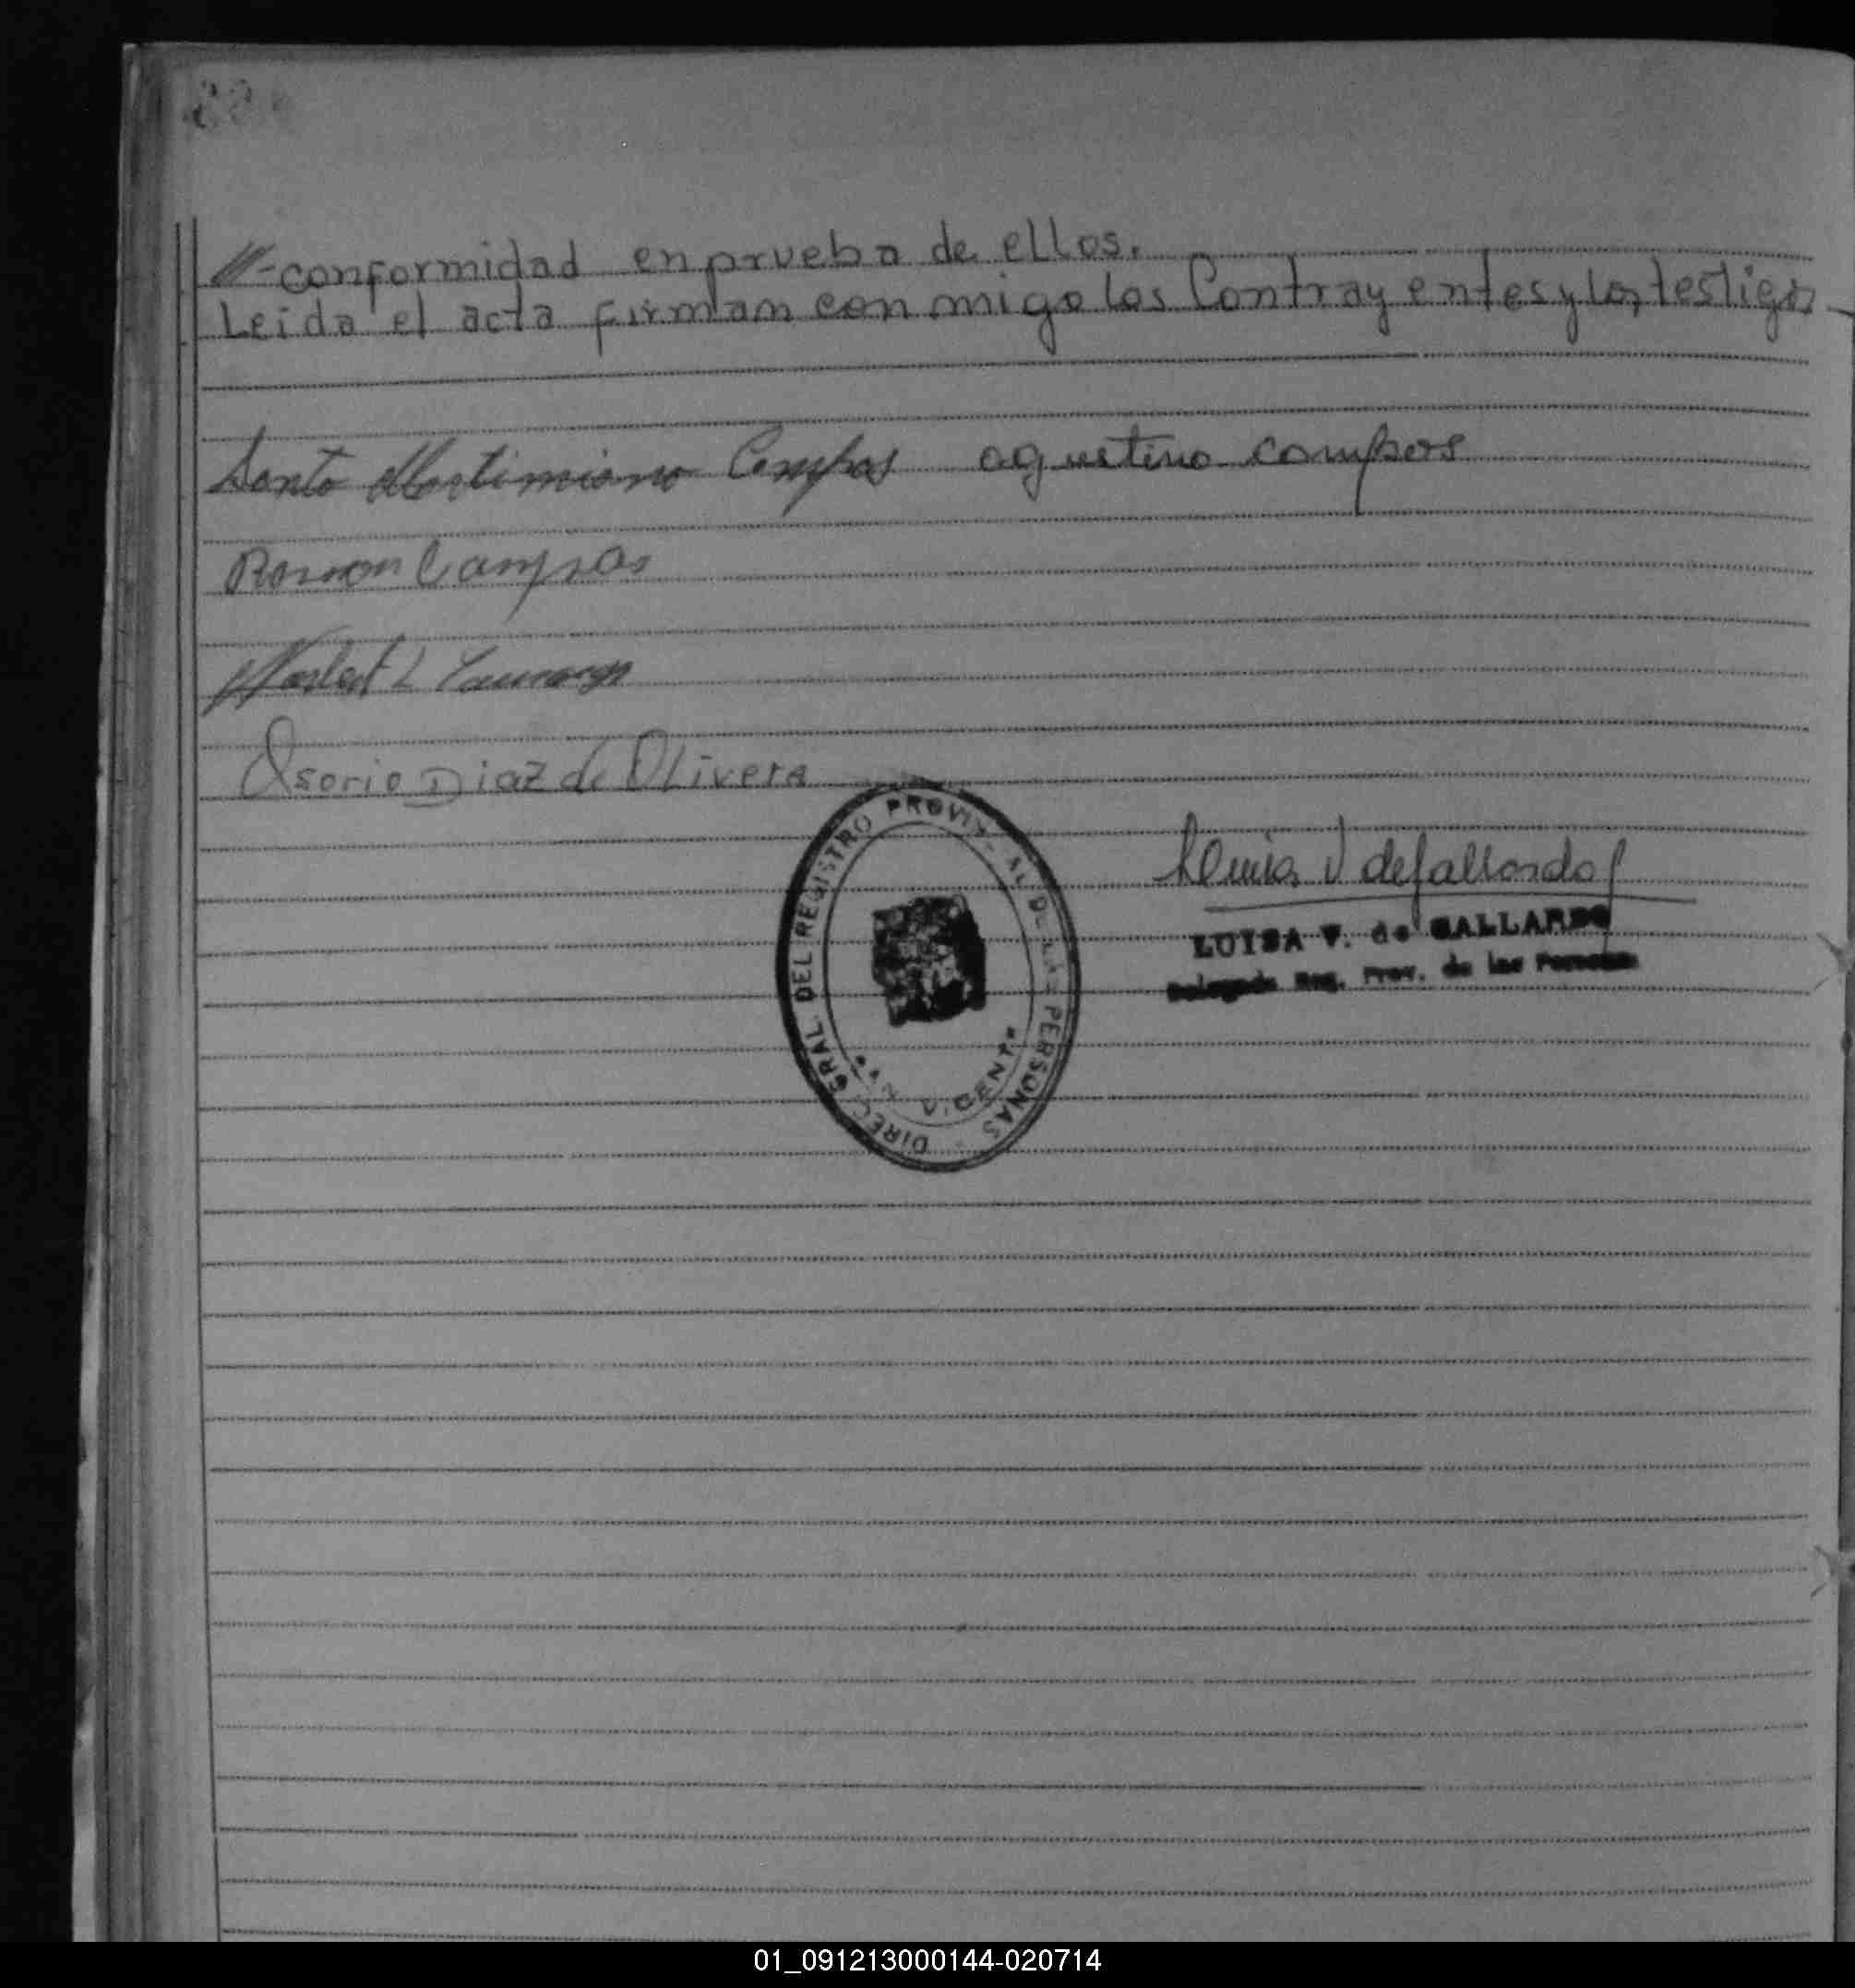 -conformidad en prueba de ellos.
Leida el acta firman con migo los Contrayentes y los testigos
Santo Martimiano Campos agustina campos
Ramon Campos
Osorio Diaz de Olivera
DIREC. GRAL. DEL REGISTRO PROVINCIAL DE LAS PERSONAS
SAN VICENTE
Luisa V de Gallardo
LUISA V. de GALLARDO
Delegada Reg. Prov. de las Personas
01_091213000144-020714